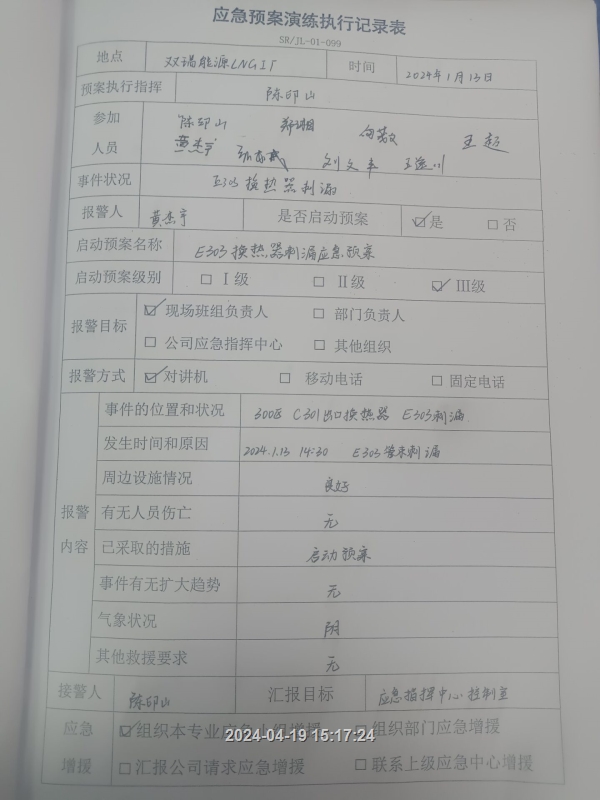 应急预案演练执行记录表
SR/JL-01-099
地点 双瑞能源LNG工厂 时间 2024年1月13日
预案执行指挥 陈印山
参加 陈印山 王超
人员 黄杰宇 刘文丰
事件状况 E303换热器刺漏
报警人 黄杰宇 是否启动预案 ☑是 □否
启动预案名称 E303换热器刺漏应急预案
启动预案级别 □Ⅰ级 □Ⅱ级 ☑Ⅲ级
报警目标 ☑现场班组负责人 □部门负责人
□公司应急指挥中心 □其他组织
报警方式 ☑对讲机 □移动电话 □固定电话
事件的位置和状况 300区 C301出口换热器 E303刺漏
发生时间和原因 2024.1.13 14:30 E303管束刺漏
周边设施情况 良好
报警 有无人员伤亡 无
内容 已采取的措施 启动预案
事件有无扩大趋势 无
气象状况 阴
其他救援要求 无
接警人 陈印山 汇报目标 应急指挥中心控制室
应急 ☑组织本专业应急小组增援 □组织部门应急增援
2024-04-19 15:17:24
增援 □汇报公司请求应急增援 □联系上级应急中心增援